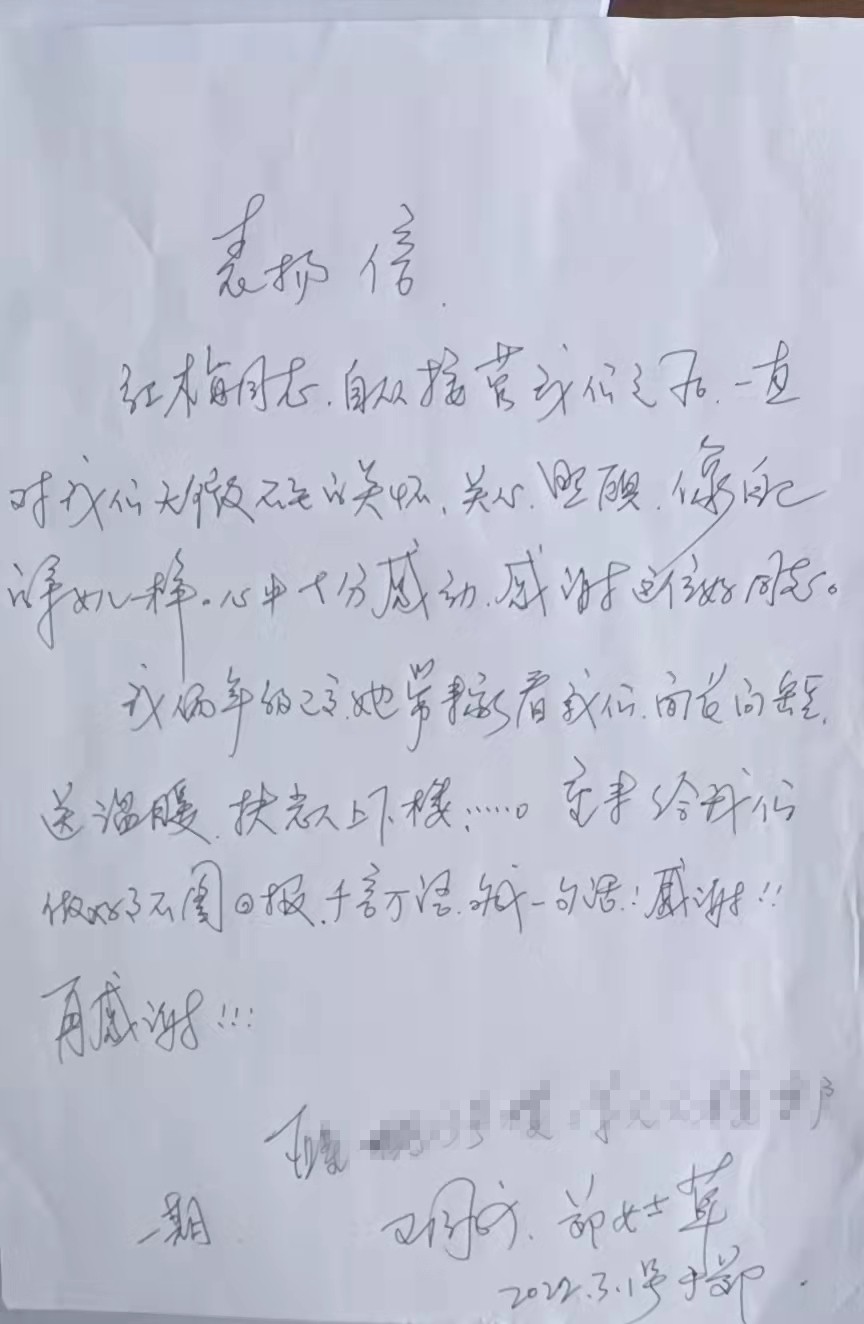 表扬信
红梅同志.自从接管我们之后.一直
对我们无微不至的关怀、关心.照顾.像自己
的事儿一样。心中十分感动.感谢这位好同志。
我俩年的已高.她常来看我们.问长问短.
送温暖.扶老人上下楼:……。 给我们
做好了不图回报.千言万语.成一句话:感谢!!
再感谢!!!
一期 郑女士草
2022.3.1号于郑